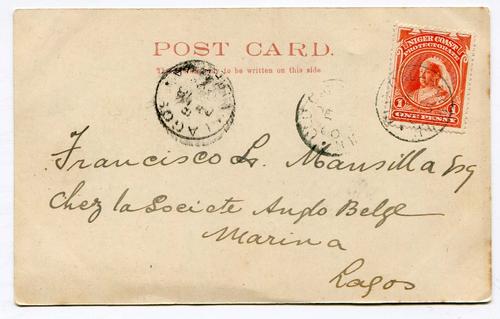 POST CARD.
The address only to be written on this side
NIGER COAST
PROTECTORATE
1 1
ONE PENNY
LAGOS
Francisco L. Mansilla Esq
Chez la Societe Anglo Belge
Marina
Lagos